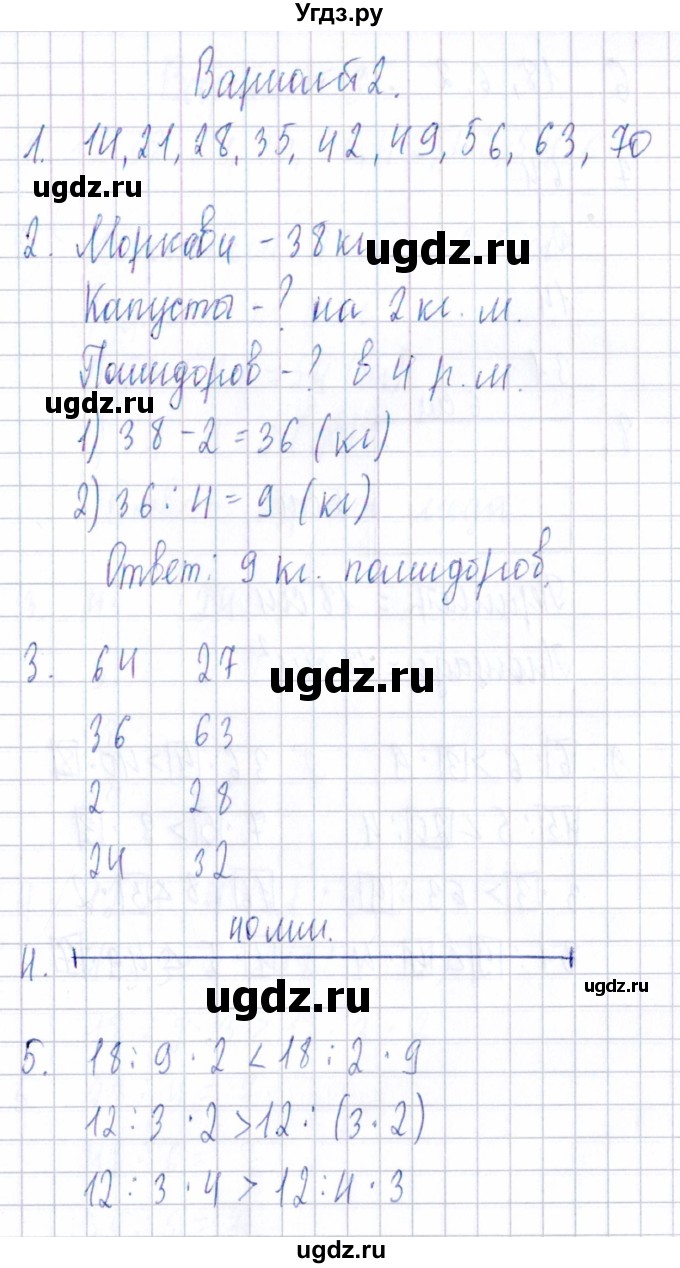 Угдз.ру
Вариант 2.
1. 14, 21, 28, 35, 42, 49, 56, 63, 70
ugdz.ru
2. Моркови - 38 кг
ugdz.ru
Капусты - ? на 2 кг. м.
Помидоров - ? в 4 р. м.
ugdz.ru
1) 38 - 2 = 36 (кг)
2) 36 : 4 = 9 (кг)
Ответ: 9 кг. помидоров.
3. 64 27
ugdz.ru
36 63
2 28
24 32
40 мм.
4.
ugdz.ru
ugdz.ru
5. 18 : 9 · 2 < 18 : 2 · 9
12 : 3 · 2 > 12 : (3 · 2)
12 : 3 · 4 > 12 : 4 · 3
ugdz.ru